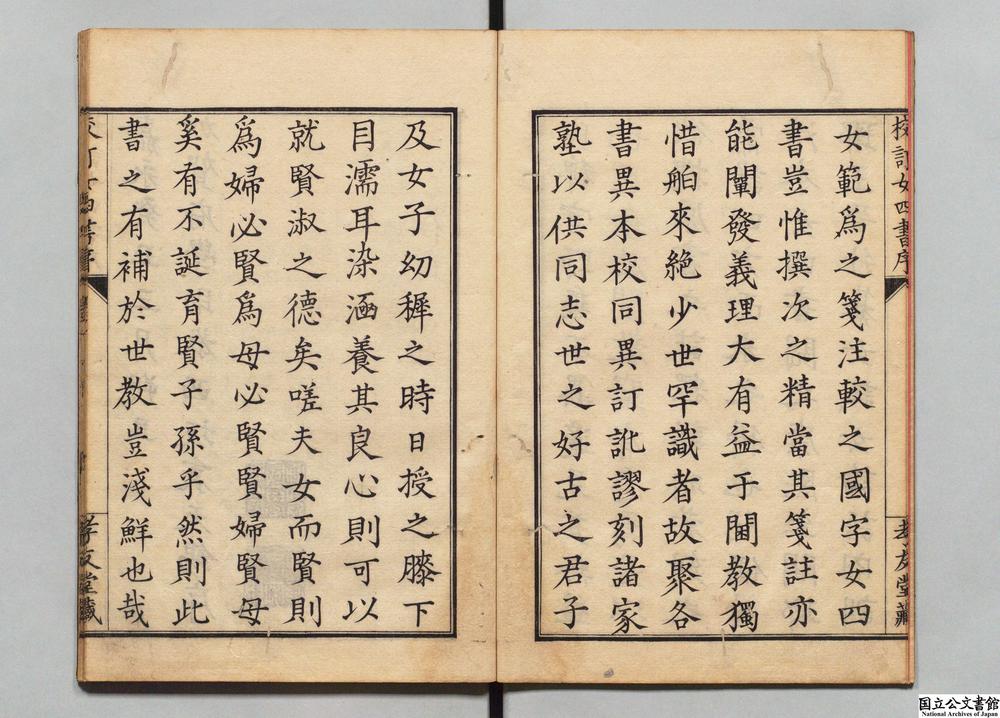 校訂女四書序
孝友堂藏
女範爲之箋注較之國字女四
書豈惟撰次之精當其箋註亦
能闡發義理大有益于閫教獨
惜舶來絶少世罕識者故聚各
書異本校同異訂訛謬刻諸家
塾以供同志世之好古之君子
及女子幼穉之時日授之膝下
目濡耳染涵養其良心則可以
就賢淑之德矣嗟夫女而賢則
爲婦必賢爲母必賢賢婦賢母
奚有不誕育賢子孫乎然則此
書之有補於世教豈淺鮮也哉
孝友堂藏
国立公文書館
National Archives of Japan